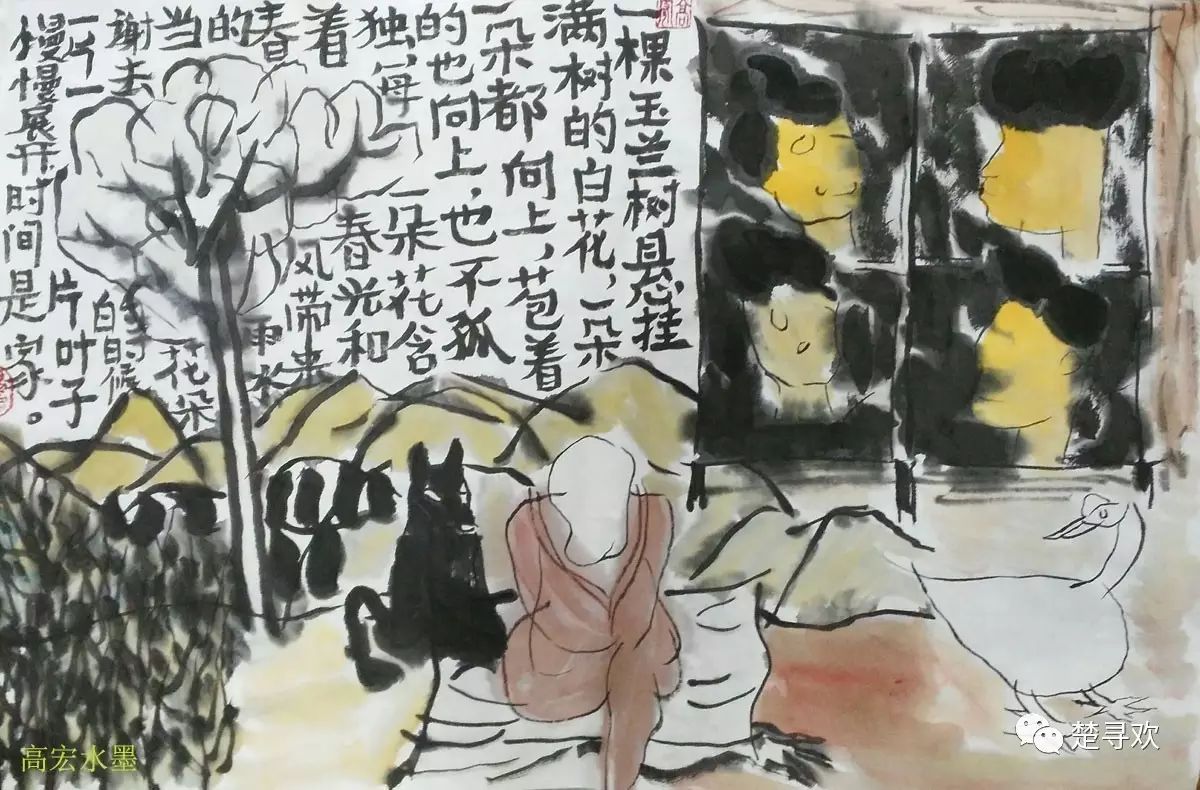 一棵玉兰树悬挂
满树的白花，一朵
一朵都向上，苞着
的也向上，也不孤
独，每一朵花含
着春光和
春风带来
的雨水
当花朵
谢去白的时候
一片一片叶子
慢慢展开时间是
高宏水墨
楚寻欢